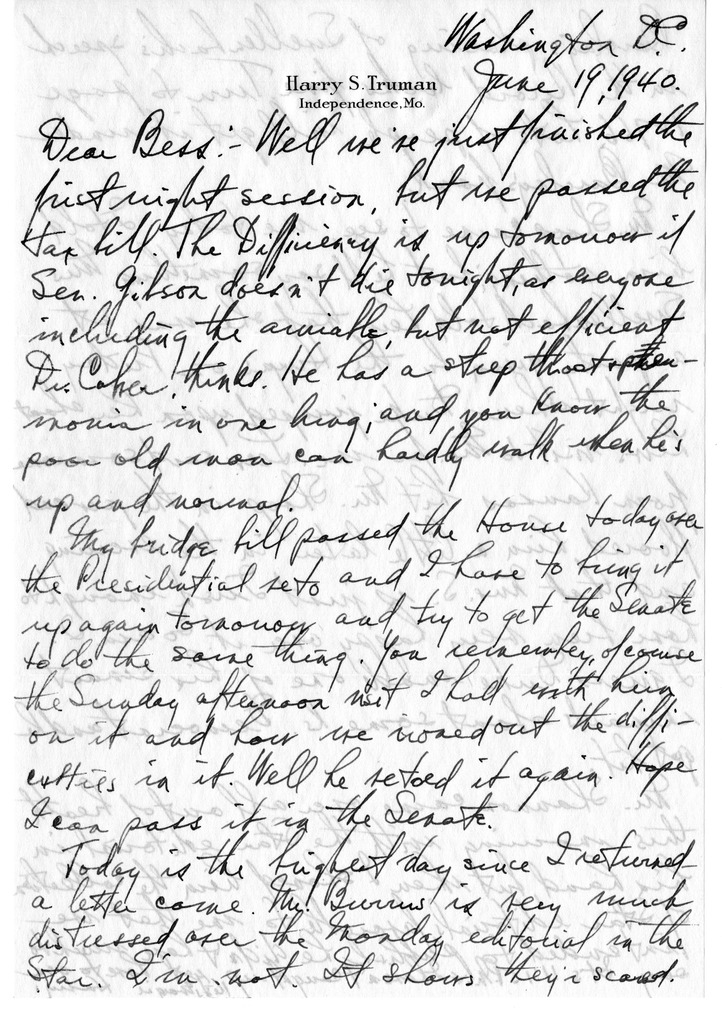 Washington D.C.
June 19, 1940.
Harry S. Truman
Independence, Mo.
Dear Bess:- Well we've just finished the
first night session, but we passed the
tax bill. The Difficiency is up tomorrow if
Sen. Gibson doesn't die tonight, as everyone
including the amiable, but not efficient
Dr. Calver, thinks. He has a strep throat pneu-
monia in one lung; and you know the
poor old man can hardly walk when he's
up and normal.
My bridge bill passed the House today over
the Presidential veto and I have to bring it
up again tomorrow and try to get the Senate
to do the same thing. You remember, of course
the Sunday afternoon visit I had with him
on it and how we ironed out the diffi-
culties in it. Well he vetoed it again. Hope
I can pass it in the Senate.
Today is the brightest day since I returned
a letter came. Mr. Burrus is very much
distressed over the Monday editorial in the
Star. I'm not. It shows they'r scared.